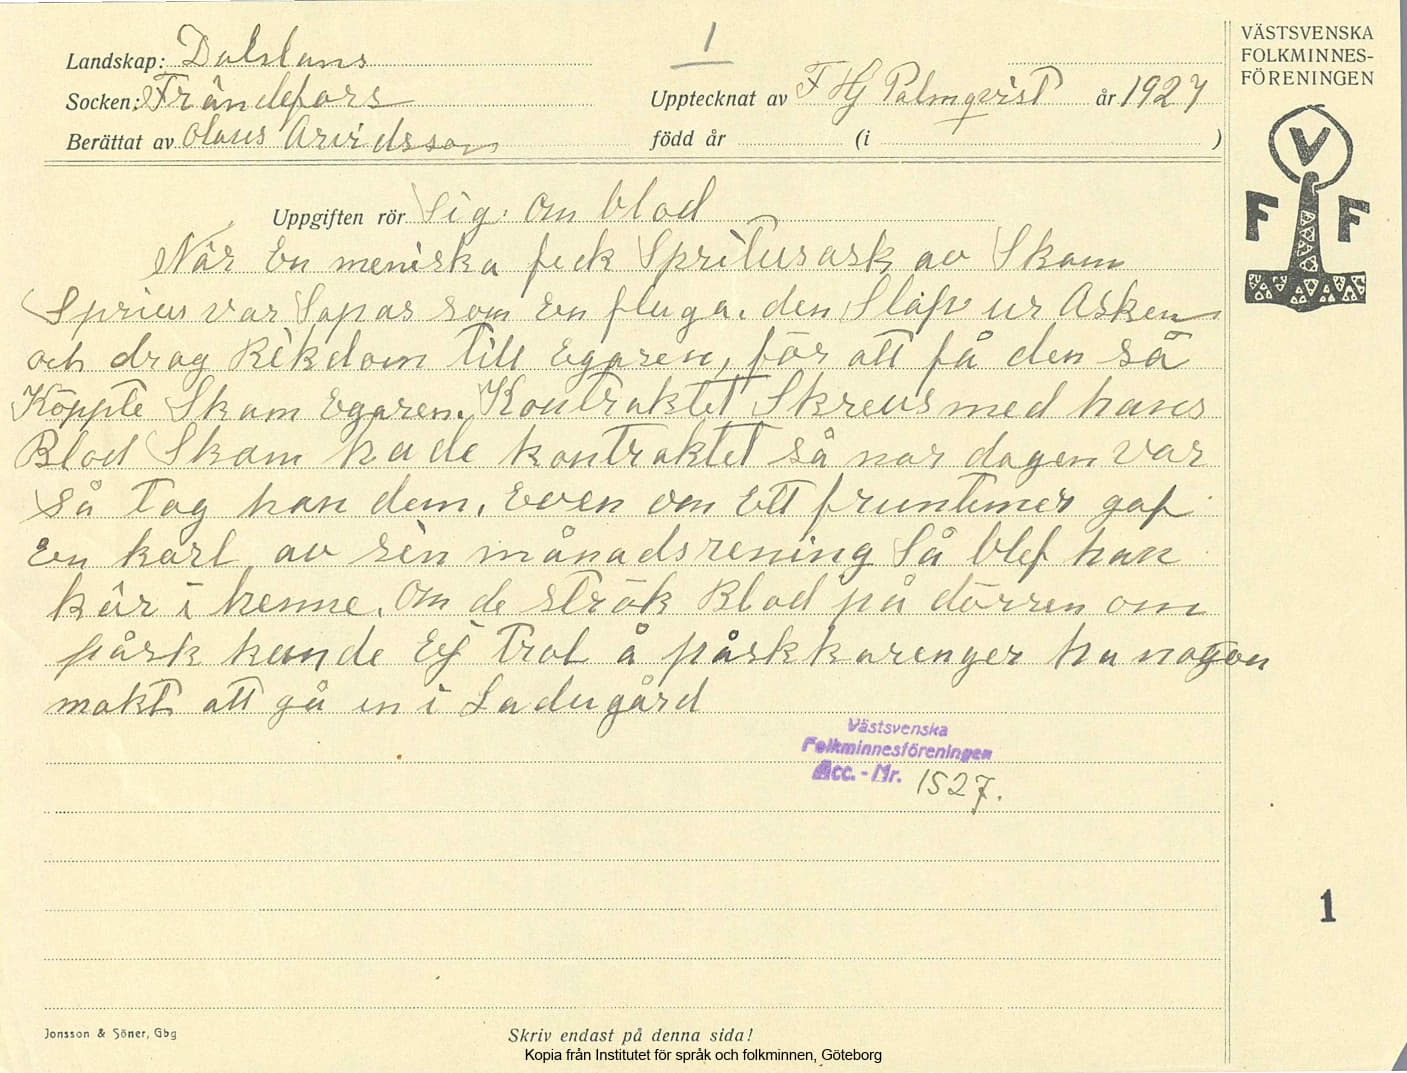 1
VÄSTSVENSKA
FOLKMINNES-
FÖRENINGEN
Landskap: Dalslans
Socken: Frändefors
Upptecknat av F Hj Palmqvist år 1927
Berättat av Olaus Arvidsson
född år (i )
V
F F
Uppgiften rör Sig: om blod
När En meniska feck Spritusask av Skam
Sprius var Sapas som En fluga. den Slåp ur Asken
och drog Rikdom till Egaren, för att få den så
Köppte Skam Egaren. Kontraktet Skrevs med hans
Blod Skam hade kontraktet så nar dagen var
så tog han dem. Even om Ett fruntimer gaf
En karl av sin månadsrening Så blef han
kär i henne. Om de strök Blod på dörren om
påsk kunde Ej Trol å påskkarenger ha nogon
makt att gå in i Ladugård
Västsvenska
Folkminnesföreningen
Acc. - Nr. 1527.
1
Jonsson & Söner, Gbg
Skriv endast på denna sida!
Kopia från Institutet för språk och folkminnen, Göteborg